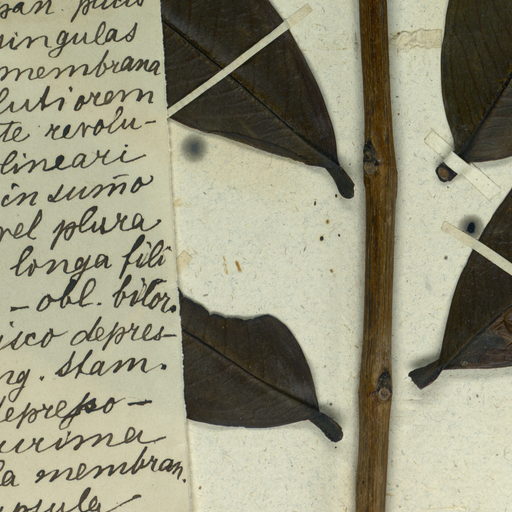 pan. pluris
singulas
membrana
lutiorem
te revolu-
lineari
in sum̄o
vel plura
longa fili
- obl. bilor.
isco depres-
ng. stam.
depresso-
urima
la membran.
psula